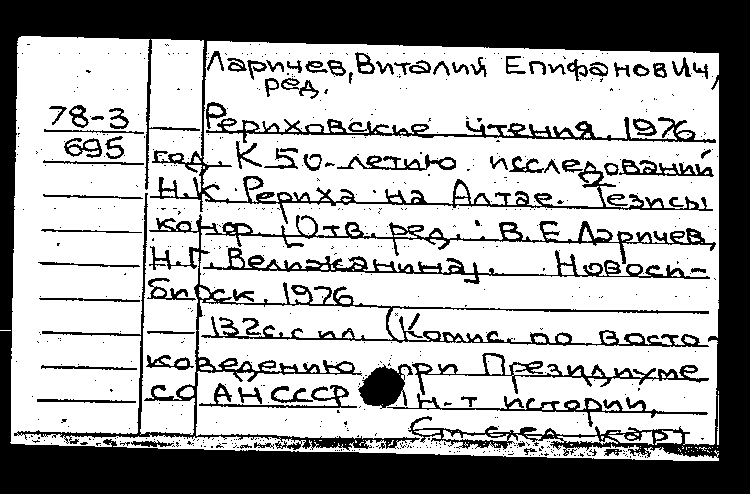 Ларичев, Виталий Епифанович,
ред.
78-3
695
Рериховские чтения. 1976
год. К 50-летию исследований
Н.К. Рериха на Алтае. Тезисы
конф. [Отв. ред.: В.Е. Ларичев,
Н.Г. Велижанина]. Новоси-
бирск, 1976.
132с. с ил. (Комис. по восто-
коведению при Президиуме
СО АН СССР Ин-т истории,
См след карт